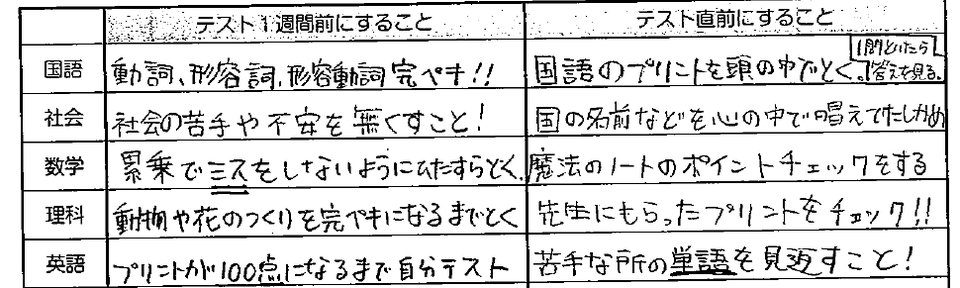 テスト1週間前にすること テスト直前にすること
国語 動詞、形容詞、形容動詞完ペキ!! 国語のプリントを頭の中でとく。1問といたら答えを見る。
社会 社会の苦手や不安を無くすこと! 国の名前などを心の中で唱えてたしかめ
数学 累乗でミスをしないようにひたすらとく。 魔法のノートのポイントチェックをする
理科 動物や花のつくりを完ペキになるまでとく 先生にもらったプリントをチェック!!
英語 プリントが100点になるまで自分テスト 苦手な所の単語を見返すこと!